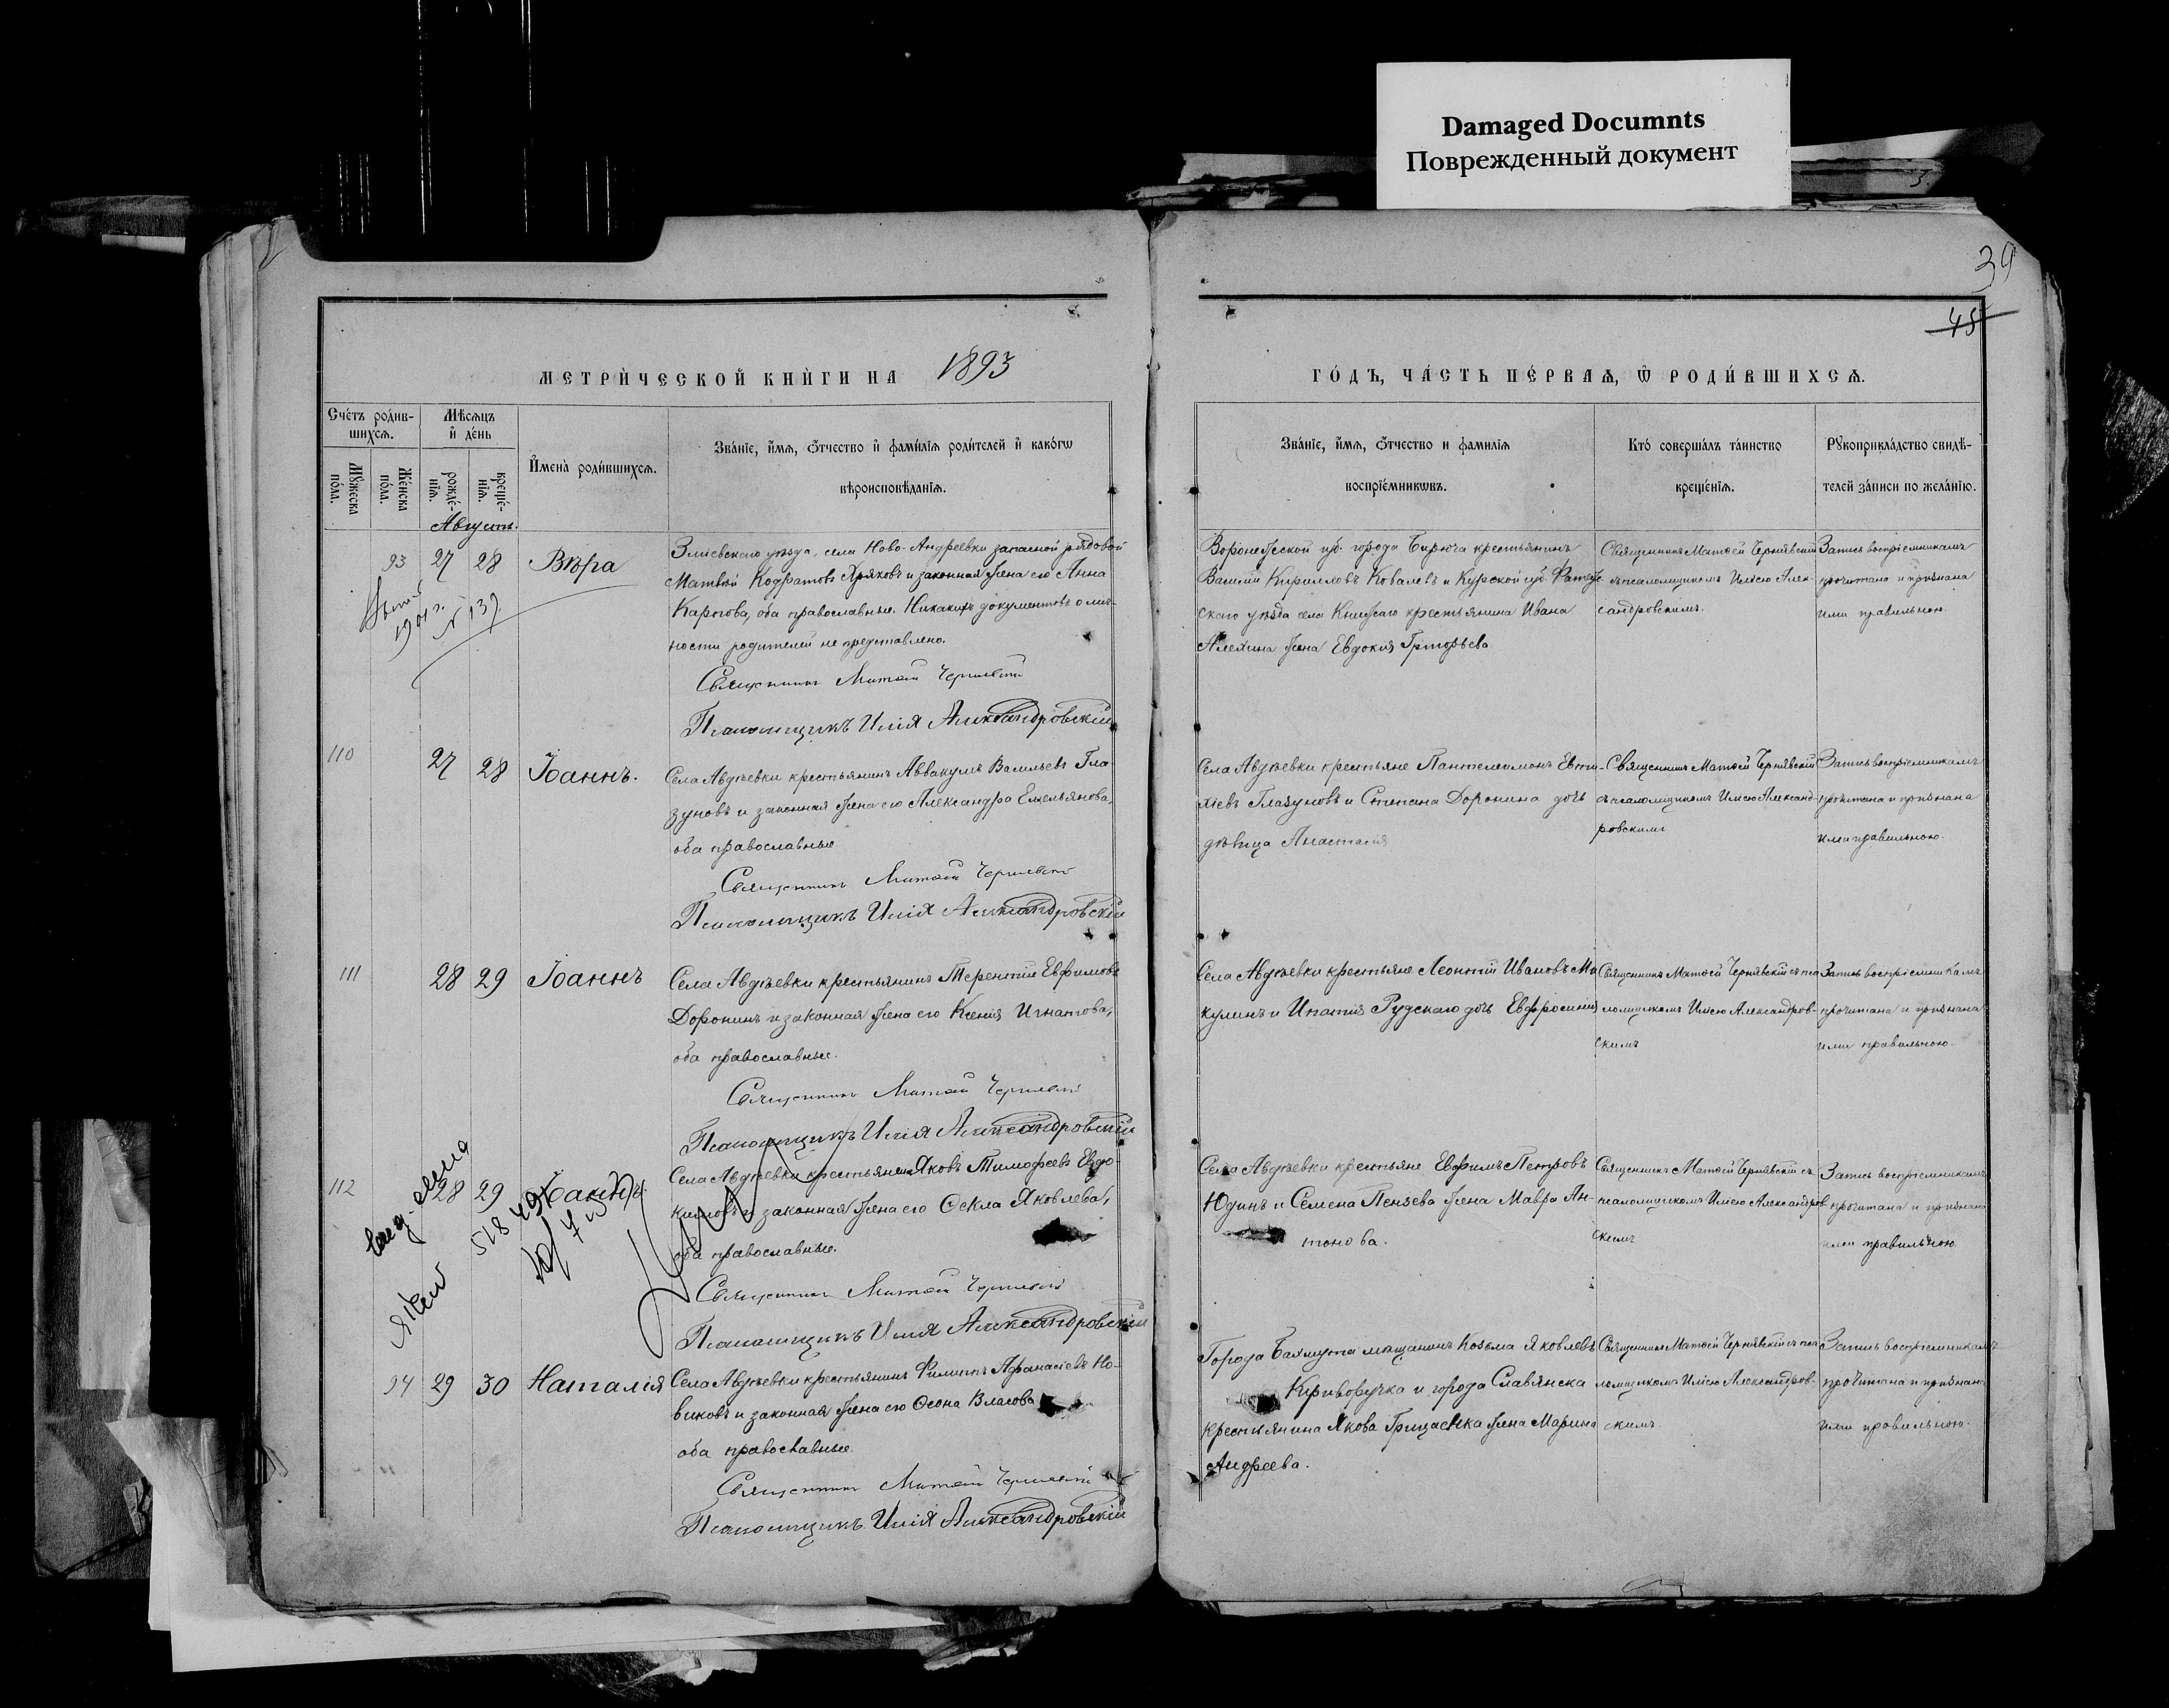 Damaged Documnts
Поврежденный документ
39
45
МЕТРИ́ЧЕСКОЙ КНИ́ГИ НА 1893
ГО́ДЪ, ЧА́СТЬ ПЕ́РВАѦ, Ѽ РОДИ́ВШИХСѦ.
Сче́тъ роди́в-
шихсѧ.
Мꙋ́жеска
по́ла.
Же́нска
по́ла.
Мѣ́сѧцъ
и҆ де́нь
рожде́-
нїѧ.
креще́-
нїѧ.
И҆мена̀ роди́вшихсѧ.
Зва́нїе, и҆́мѧ, ѻ҆́тчество и҆ фами́лїѧ роди́телей и҆ како́гѡ
вѣроисповѣ́данїѧ.
Зва́нїе, и҆́мѧ, ѻ҆́тчество и фамилїѧ
воспрїе́мникѡвъ.
Кто́ соверша́лъ та́инство
креще́нїѧ.
Рꙋкоприкла́дство свидѣ́-
телей за́писи по жела́нїю.
Августъ.
93 27 28 Вѣра
Зміевскаго уѣзда, села Ново-Андреевки запасной рядовой
Матвѣй Кодратовъ Хряковъ и законная жена его Анна
Карпова, оба православные. Никакихъ документовъ о лич-
ности родителей не представлено.
Священникъ Матѳей Чернявскій
Псаломщикъ Илія Александровскій
Воронежской губ. города Бирюча крестьянинъ
Василій Кирилловъ Ковалевъ и Курской губ. Фатеж-
скаго уѣзда села крестьянина Ивана
Алехина жена Евдокія Григорьева
Священникъ Матѳей Чернявскій
съ псаломщикомъ Иліею Алек-
сандровскимъ.
Запись воспріемникамъ
прочитана и признана
ими правильною.
1901 г.
№ 137
110 27 28 Іоаннъ.
Села Авдѣевки крестьянинъ Аввакумъ Васильевъ Гла
зуновъ и законная жена его Александра Емельянова,
оба православные
Священникъ Матѳей Чернявскій
Псаломщикъ Илія Александровскій
Села Авдѣевки крестьяне Пантелеимонъ Евти-
хіевъ Глазуновъ и Степана Доронина дочь
дѣвица Анастасія
Священникъ Матѳей Чернявскій
съ псаломщикомъ Иліею Александ-
ровскимъ
Запись воспріемникамъ
прочитана и признана
ими правильною.
111 28 29 Іоаннъ
Села Авдѣевки крестьянинъ Терентій Евфимовъ
Доронинъ и законная жена его Ксенія Игнатова,
оба православные.
Священникъ Матѳей Чернявскій
Псаломщикъ Илія Александровскій
Села Авдѣевки крестьяне Леонтій Ивановъ Ма
кулинъ и Ипатія Рудскаго дочь Евфросинія
Священникъ Матѳей Чернявскій съ пса
ломщикомъ Иліею Александров-
скимъ
Запись воспріемникамъ
прочитана и признана
ими правильною.
112 28 29 Іоаннъ.
Села Авдѣевки крестьянинъ Яковъ Тимофеевъ Евдо-
кимовъ и законная жена его Ѳекла Яковлева,
оба православные.
Священникъ Матѳей Чернявскій
Псаломщикъ Илія Александровскій
Села Авдѣевки крестьяне Евфимъ Петровъ
Юдинъ и Семена Пензева жена Мавра Ан-
тонова.
Священникъ Матѳей Чернявскій съ
псаломщикомъ Иліею Александров
скимъ
Запись воспріемникамъ
прочитана и признана
ими правильною
94 29 30 Наталія
Села Авдѣевки крестьянинъ Филиппъ Афанасіевъ Но-
виковъ и законная жена его Ѳеона Власова
оба православные.
Священникъ Матѳей Чернявскій
Псаломщикъ Илія Александровскій
Города Бахмута мѣщанинъ Козьма Яковлевъ
Криворучка и города Славянска
крестьянина Якова Грищенка жена Марина
Андреева.
Священникъ Матѳей Чернявскій съ пса
ломщикомъ Иліею Александров-
скимъ
Запись воспріемникамъ
прочитана и признана
ими правильною.